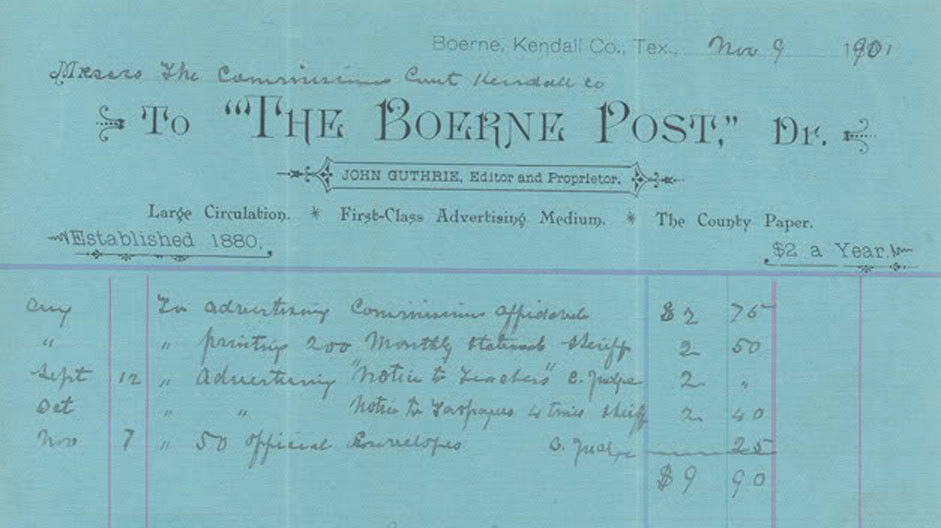 Boerne, Kendall Co., Tex., Nov 9 1901
Messrs The Commissions Court Kendall co
To "THE BOERNE POST," Dr.
JOHN GUTHRIE, Editor and Proprietor.
Large Circulation. * First-Class Advertising Medium. * The County Paper.
Established 1880. $2 a Year.
Aug To advertising Commissions affidavit $2 75
" " printing 200 Monthly statements Sheriff 2 50
Sept 12 " Advertising "Notice to Teachers" C. Judge 2 "
Oct " " Notice to Taxpayers 4 times Sheriff 2 40
Nov 7 " 50 official Envelopes C. Judge 25
$9 90